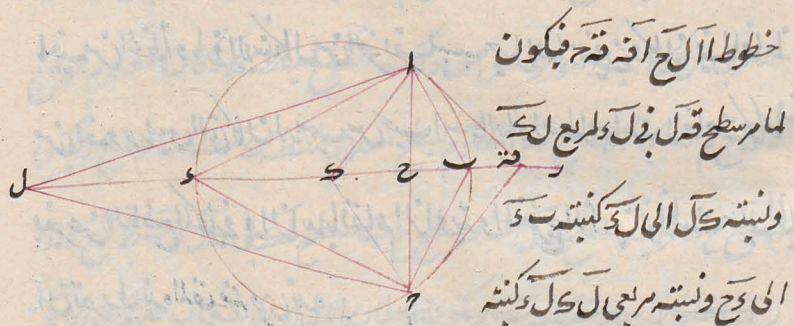 خطوط اا ل ح اقه قه ح فيكون
لما مر سطح قه ل في ل ء لمربع ل ك
ونسبته ك ل الى ل ء كنسبته ب ء
الى ء ح ونسبته مربعي ل ك ل ء كنسبته
ا
ل ء ك ح ب قه ر
ح